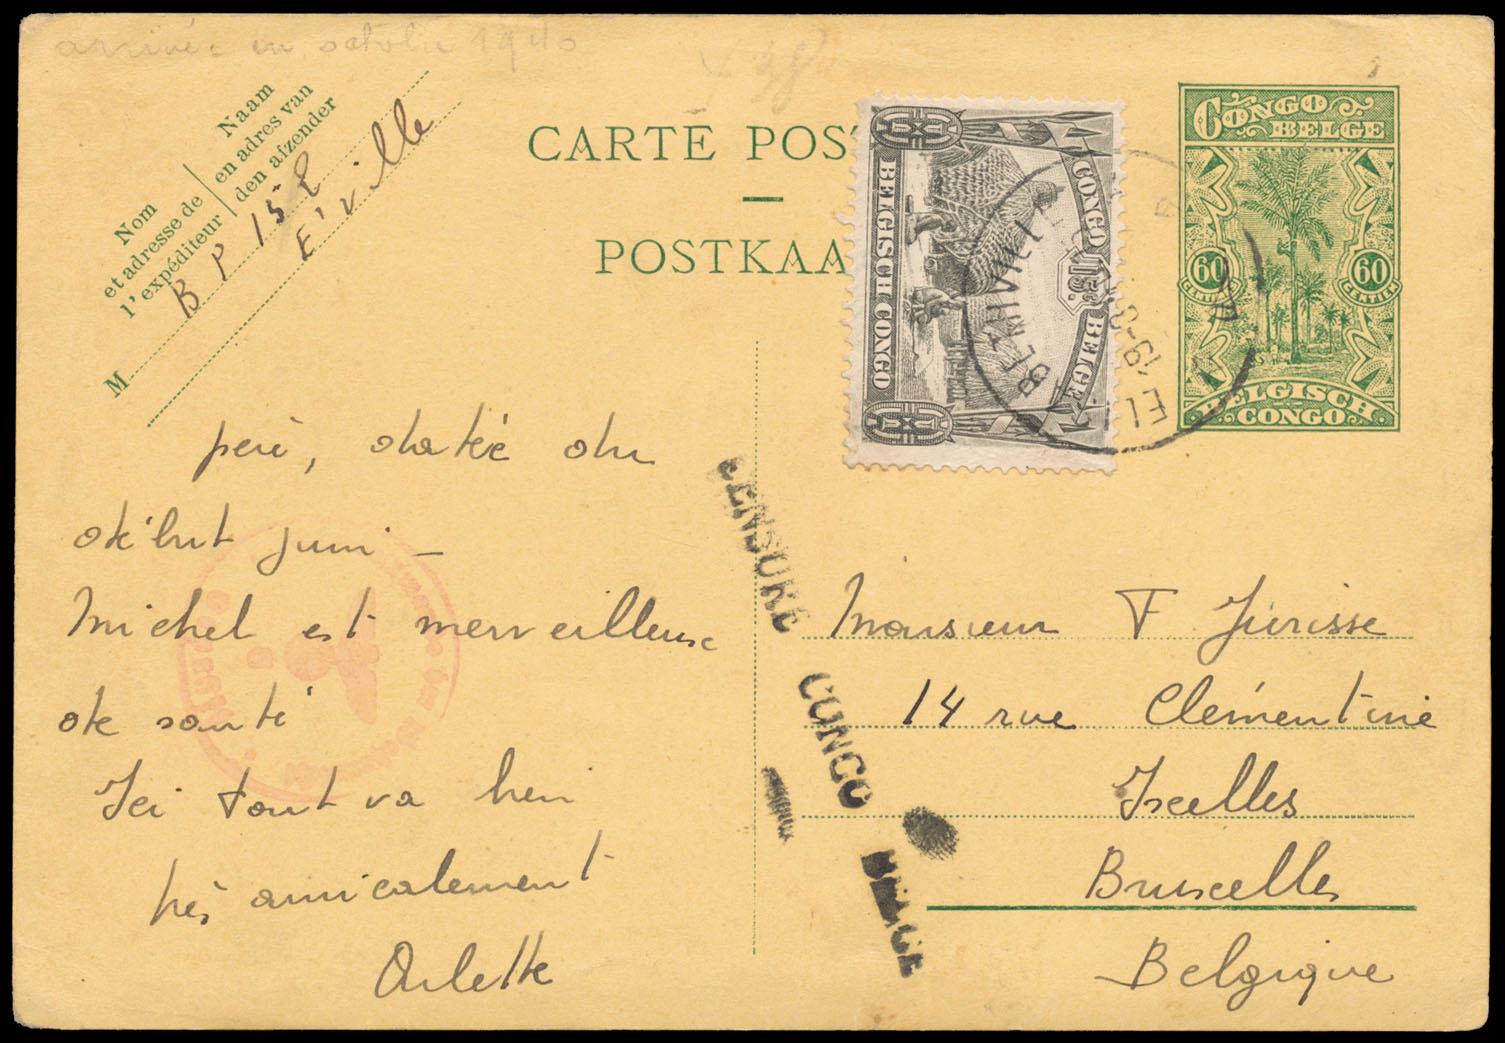 arrivée en octobre 1940
Nom
et adresse de
l'expéditeur
Naam
en adres van
den afzender
B P 152
E'ville
M
CARTE POS
POSTKAA
CONGO
BELGE
60
60
CENTIMES
CENTIEM
BELGISCH
CONGO
BELGISCH CONGO
CONGO BELGE
15c.
ELISABETHVILLE
CENSURE CONGO BELGE
père, datée du
début juin –
Michel est merveilleux
de santé
Ici tout va bien
très amicalement
Arlette
Monsieur F Jurisse
14 rue Clémentine
Ixelles
Bruxelles
Belgique